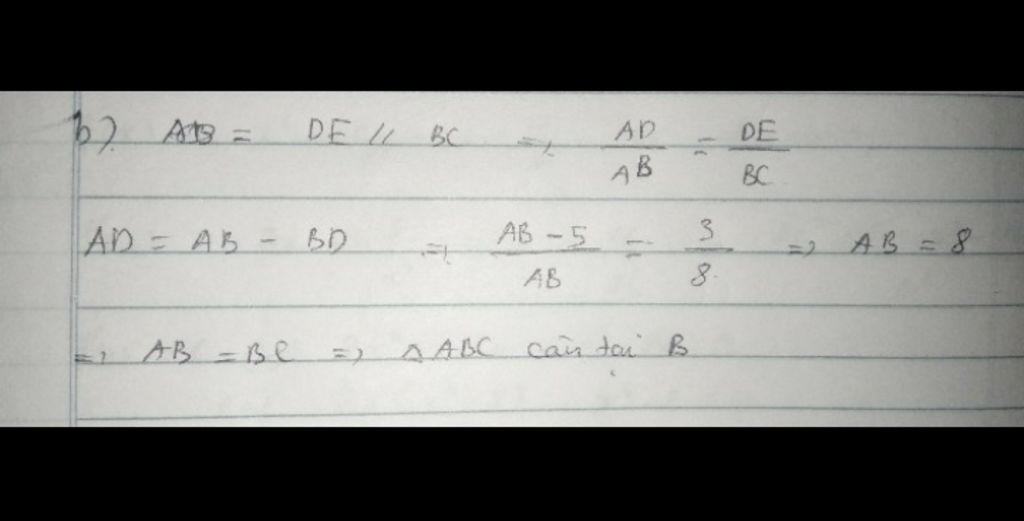 b). AB = DE // BC => AD/AB = DE/BC
AD = AB - BD => AB - 5/AB = 3/8 => AB = 8
=> AB = BC => △ABC cân tại B